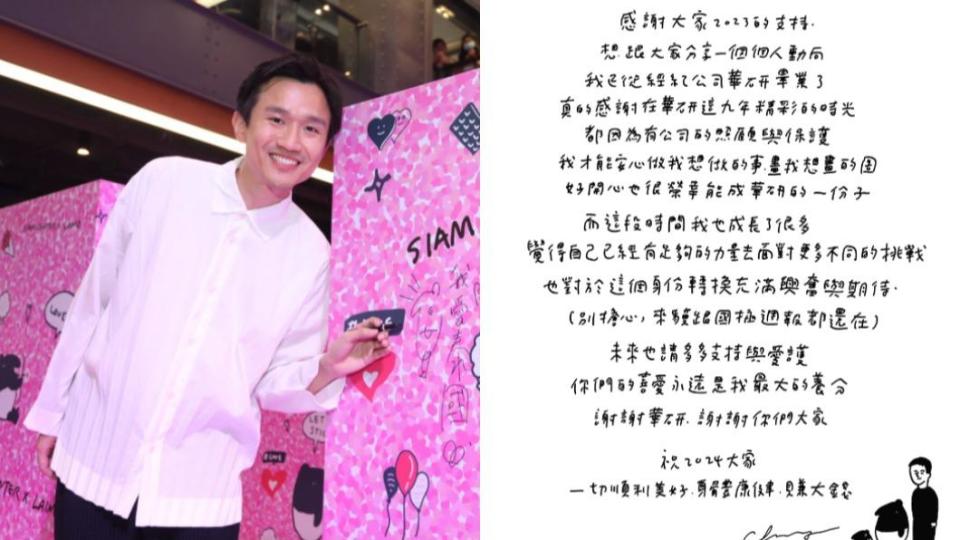 SIAM
我愛泰國
LOVE
LET
感謝大家2023的支持.
想跟大家分享一個個人動向
我已從經紀公司華研畢業了
真的感謝在華研這九年精彩的時光
都因為有公司的照顧與保護
我才能安心做我想做的事.畫我想畫的圖
好開心也很榮幸能成華研的一份子
而這段時間我也成長了很多
覺得自己已經有足夠的力量去面對更多不同的挑戰
也對於這個身份轉換充滿興奮與期待.
(別擔心,來貘跟國極週報都還在)
未來也請多多支持與愛護
你們的喜愛永遠是我最大的養分
謝謝華研.謝謝你們大家
祝2024大家
一切順利美好.身體健康.賺大錢